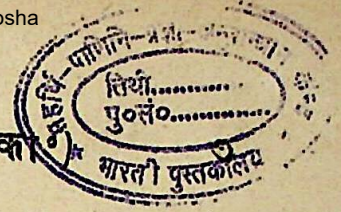 osha
महर्षि-पाणिनि-
तिथी..............
पु०सं०..............
भारती पुस्तकालय